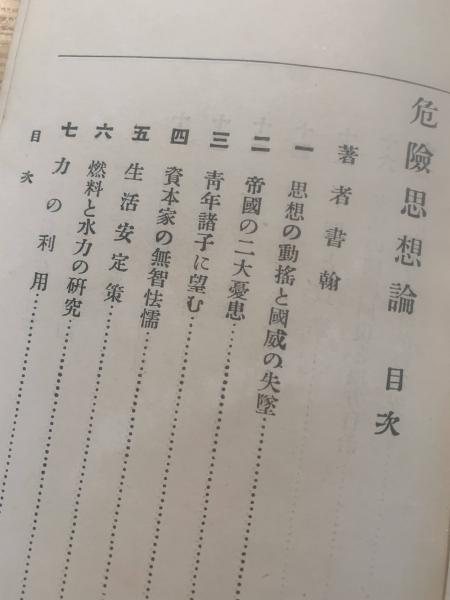 危險思想論 目次
著者書翰
一 思想の動搖と國威の失墜
二 帝國の二大憂患
三 靑年諸子に望む
四 資本家の無智怯懦
五 生活安定策
六 燃料と水力の硏究
七 力の利用
目次